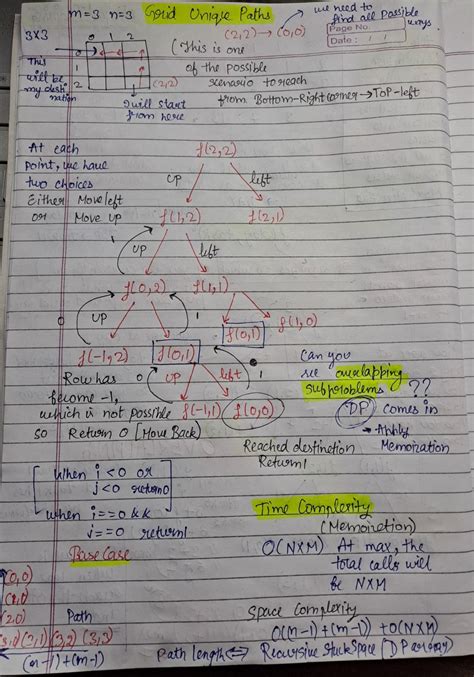 m=3 n=3 Grid Unique Paths
we need to find all possible ways
(2,2) → (0,0)
Page No.
Date: / /
3x3
0 1 2
0
1
2
(2,2)
This will be my destination
I will start from here
(This is one of the possible scenario to reach from Bottom-Right corner → Top-left
At each point, we have two choices
Either Move left or Move up
f(2,2)
UP left
f(1,2) f(2,1)
1
UP left
f(0,2) f(1,1)
UP 1
f(0,1) f(1,0)
f(-1,2) f(0,1)
0 UP left 1
f(-1,1) f(0,0)
Row has become -1, which is not possible
so Return 0 [Move Back]
Can you see overlapping subproblems ??
DP comes in
→ Apply Memoization
Reached destination
Return 1
when i<0 or
j<0 return 0
when i==0 &&
j==0 return 1
Base Case
Time Complexity
(Memoization)
O(NXM) At max, the total calls will be NXM
Space Complexity
O((n-1)+(m-1)) + O(NXM)
Path length ⇔ Recursive stack space (DP array)
(0,0)
(1,0)
(2,0)
(3,1) (3,2) (3,3)
Path
(n-1)+(m-1)